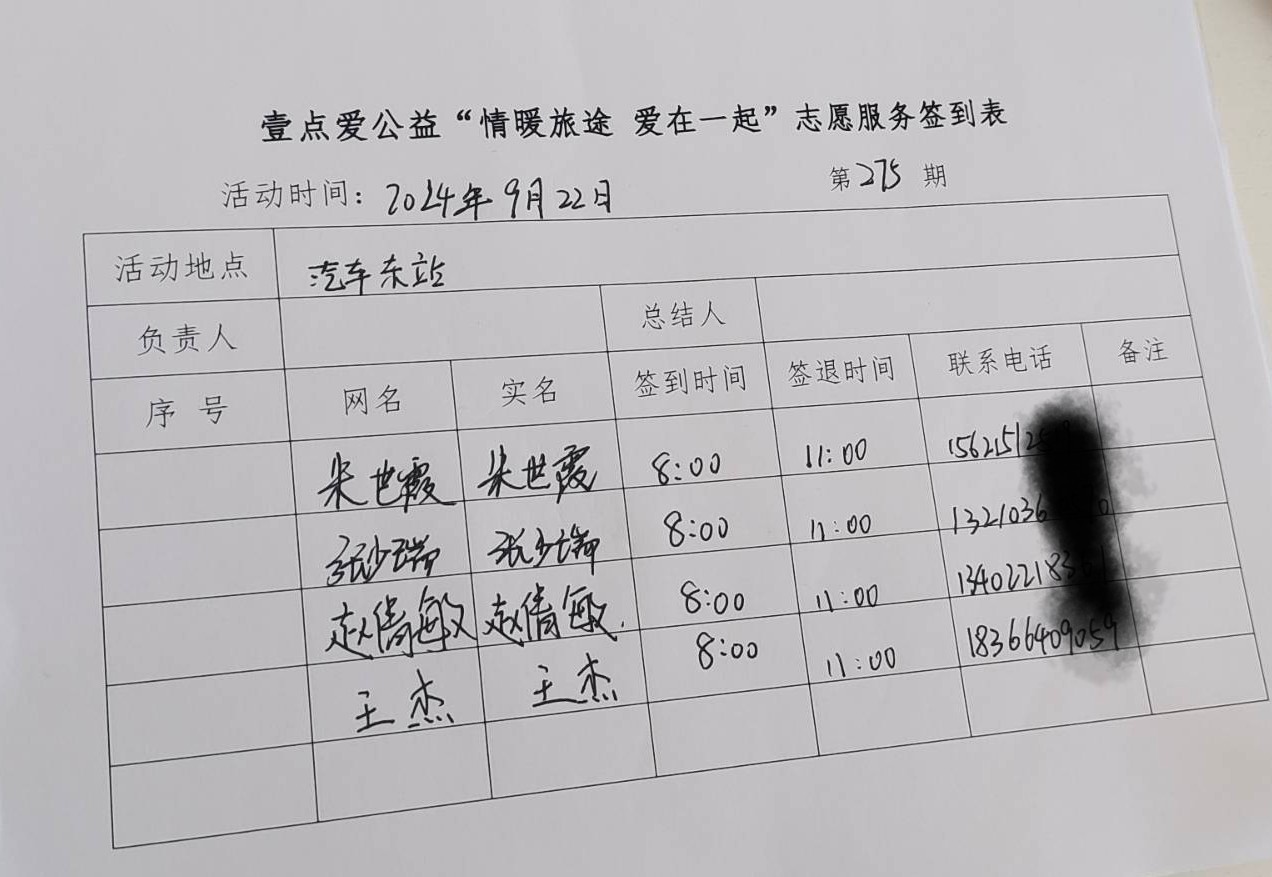 壹点爱公益“情暖旅途 爱在一起”志愿服务签到表
活动时间：2024年9月22日 第275期
活动地点 汽车东站
负责人 总结人
序号 网名 实名 签到时间 签退时间 联系电话 备注
朱世霞 朱世霞 8:00 11:00
张沙瑞 张沙瑞 8:00 11:00
赵倩敏 赵倩敏 8:00 11:00
王杰 王杰 8:00 11:00